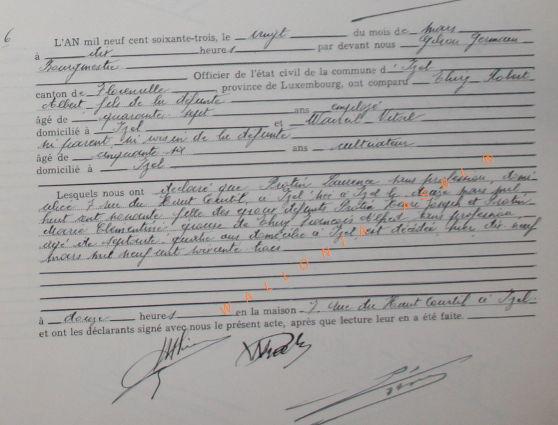 6
L'AN mil neuf cent soixante-trois, le vingt du mois de mars
à dix heures par devant nous Gérion Germain
Bourgmestre
Officier de l'état civil de la commune d'Izel
canton de Florenville province de Luxembourg, ont comparu Thiry Robert
Albert fils de la défunte
âgé de quarante sept ans employé
domicilié à Izel et Marcel Vital
ni parent ni voisin de la défunte
âgé de cinquante six ans cultivateur
domicilié à Izel
Lesquels nous ont déclaré que Protin Laurence sans profession, domi
ciliée 7 rue du Haut Courtil, à Izel née à Izel le mars mil
huit cent nonante fille des époux défunts Protin Joseph et Protin
Marie Clémentine épouse de Thiry François Alfred sans profession
âgé de septante quatre ans domicilié à Izel est décédée hier dix neuf
mars mil neuf cent soixante trois
à douze heures en la maison 7, rue du Haut Courtil à Izel
et ont les déclarants signé avec nous le présent acte, après que lecture leur en a été faite.
WALLONIA